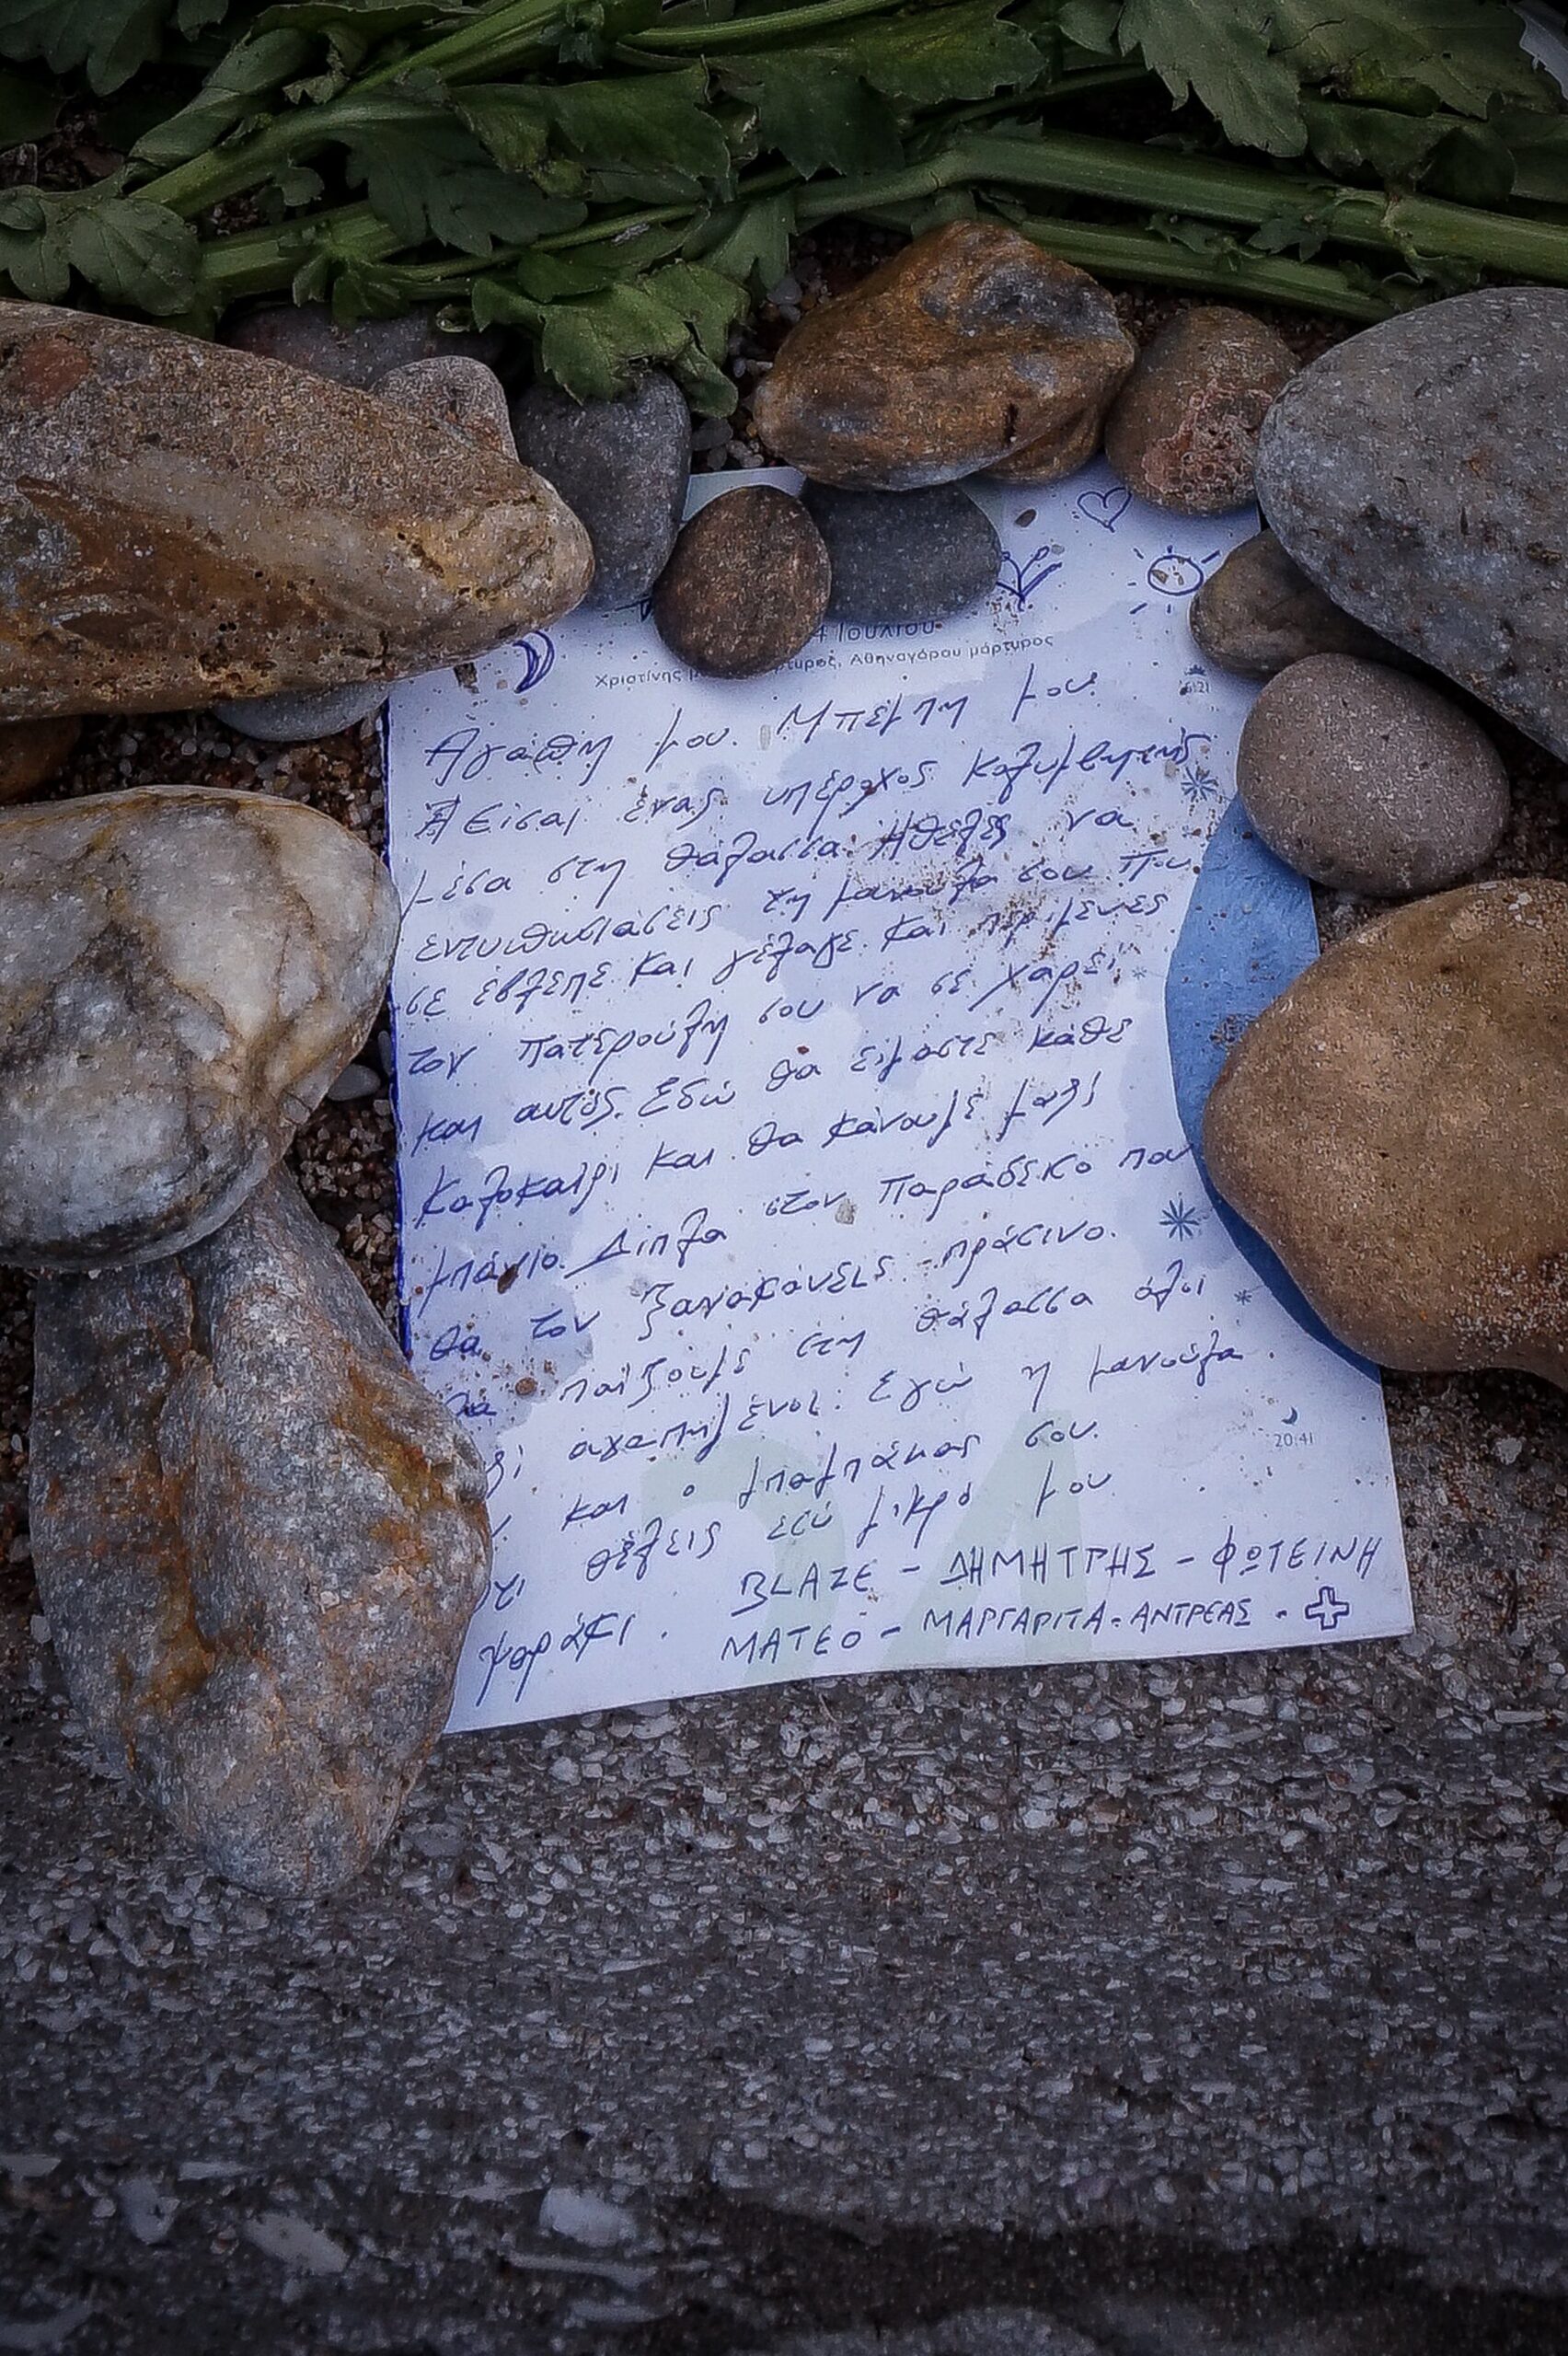 4 Ιουλίου
Χριστίνης Αθηναγόρου μάρτυρος
6:21
Αγάπη μου. Μπέμπη μου
Είσαι ένας υπέροχος κολυμβητής
μέσα στη θάλασσα. Ήθελες να
εντυπωσιάσεις τη μανούλα σου που
σε έβλεπε και γέλαγε και περίμενες
τον πατερούλη σου να σε χαρεί
και αυτός. Εδώ θα είμαστε κάθε
καλοκαίρι και θα κάνουμε μαζί
μπάνιο. Δίπλα στον παράδεισο που
θα τον ξανακάνεις πράσινο.
θα παίξουμε στη θάλασσα όλοι
αγαπημένοι. Εγώ η μανούλα
20:41
και ο μπαμπάκας σου.
θέλεις εσύ μικρό μου
ψαράκι. BLAZE - ΔΗΜΗΤΡΗΣ - ΦΩΤΕΙΝΗ
ΜΑΤΕΟ - ΜΑΡΓΑΡΙΤΑ - ΑΝΤΡΕΑΣ -